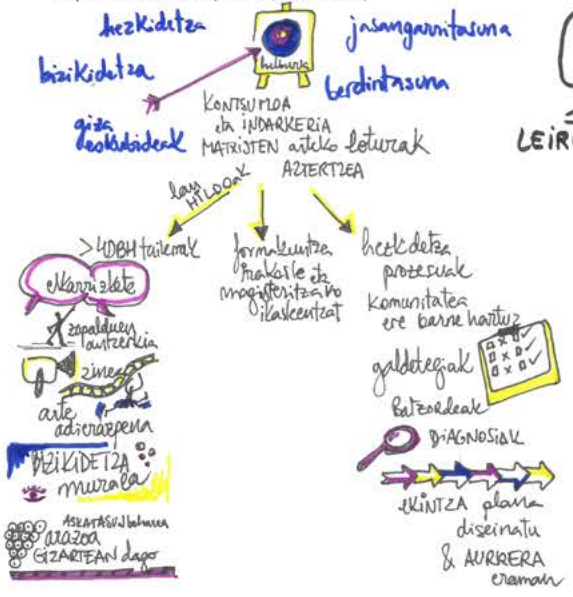 hezkidetza
jasangarritasuna
bizikidetza
helburua
berdintasuna
giza
eskubideak
KONTSUMOA
eta INDARKERIA
MATXISTEN arteko loturak
AZTERTZEA
LEIR
lan
HILDOAK
> 4DBH tailerrak
elkarrizketa
zapalduen
antzerkia
zinea
arte
adierazpena
BIZIKIDETZA
murala
ASKATASUN beharra
arazoa
GIZARTEAN dago
formakuntza
irakasle eta
magisteritzako
ikasleentzat
hezkidetza
prozesuak
komunitatea
ere barne hartuz
galdetegiak
Batzordeak
DIAGNOSIAK
EKINTZA plana
diseinatu
& AURRERA
eraman